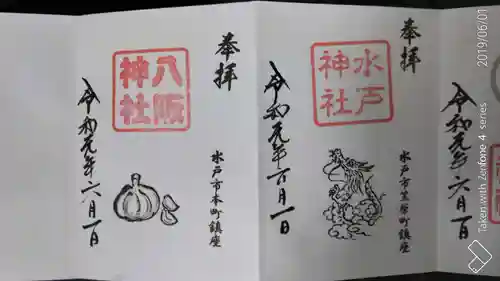 奉拝
水戸
神社
令和元年六月一日
水戸市
町鎮座
奉拝
八阪
神社
令和元年六月一日
水戸市本町鎮座
令和元年六月一日
2019/06/01
Taken with Zenfone 4 series